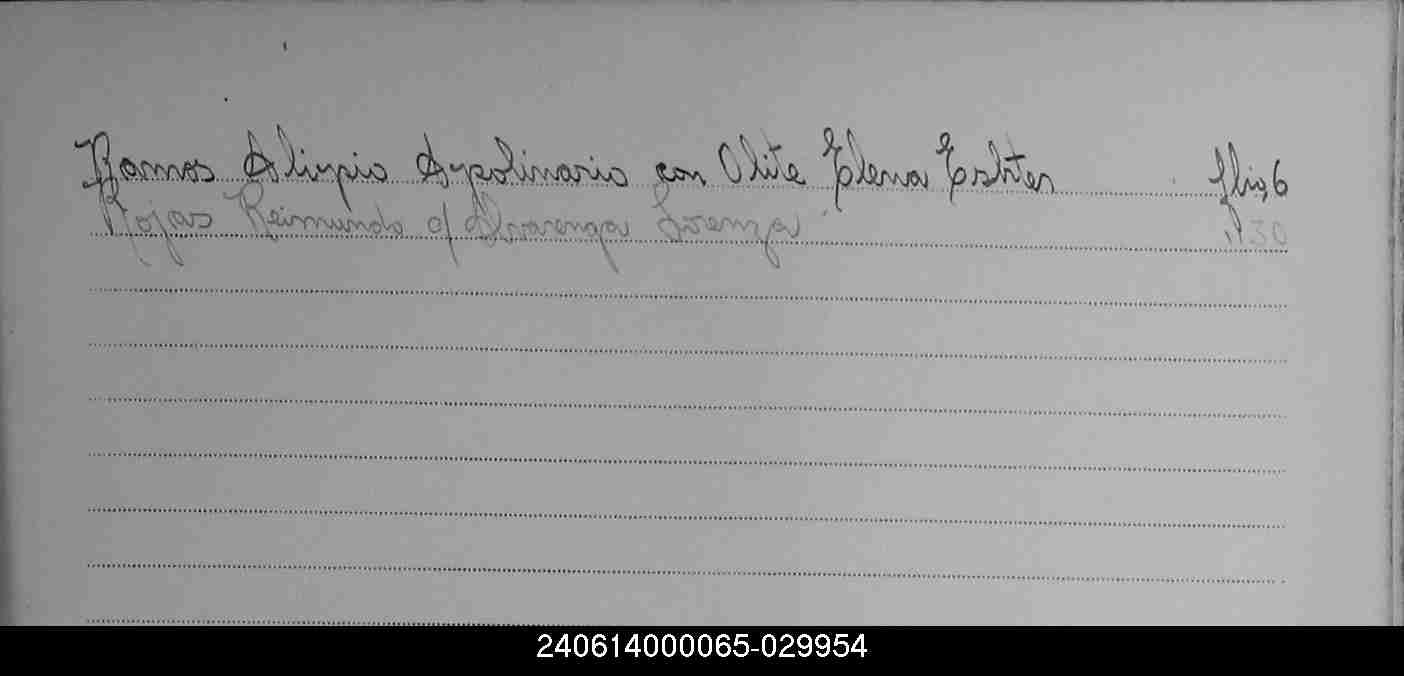 Ramos Alipio Apolinario con Olite Elena Eshter flio, 6
Rojas Reimundo c/ Alvarenga Lorenza " 30
240614000065-029954